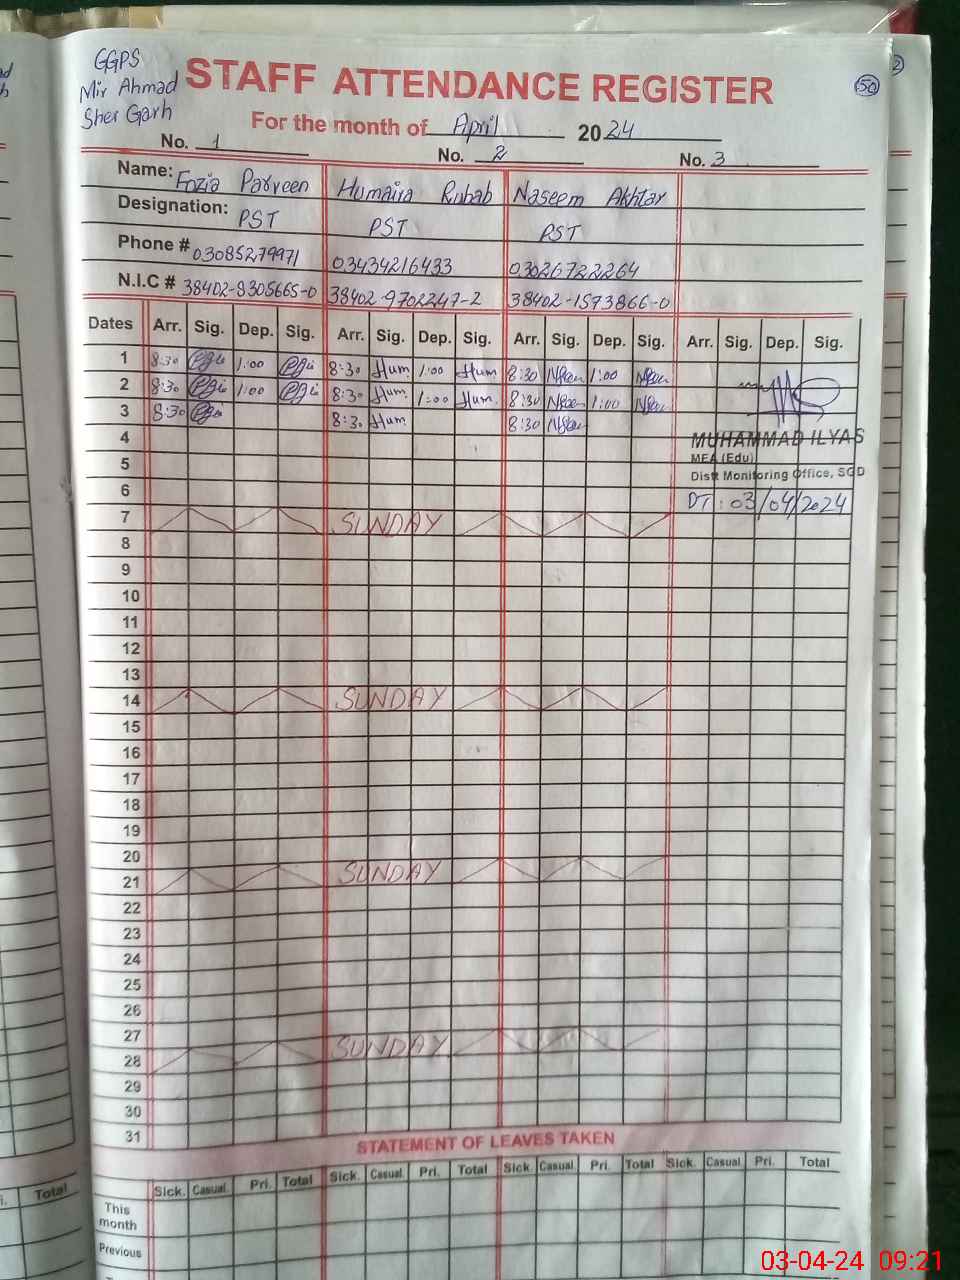 GGPS
Mir Ahmad
Sher Garh
STAFF ATTENDANCE REGISTER
50
For the month of April 2024
No. 1 No. 2 No. 3
Name: Fozia Parveen Humaira Rubab Naseem Akhtar
Designation: PST PST PST
Phone # 03085279971 03434216433 03026722264
N.I.C # 38402-8305665-0 38402-9702247-2 38402-1573866-0
Dates Arr. Sig. Dep. Sig. Arr. Sig. Dep. Sig. Arr. Sig. Dep. Sig. Arr. Sig. Dep. Sig.
1 8:30 1:00 8:30 Hum 1:00 Hum 8:30 1:00
2 8:30 1:00 8:30 Hum 1:00 Hum 8:30 1:00
3 8:30 8:30 Hum 8:30
4 MUHAMMAD ILYAS
MEA (Edu)
5 Distt Monitoring Office, SGD
6 DT: 03/04/2024
7 SUNDAY
8
9
10
11
12
13
14 SUNDAY
15
16
17
18
19
20
21 SUNDAY
22
23
24
25
26
27
28 SUNDAY
29
30
31
STATEMENT OF LEAVES TAKEN
Sick. Casual. Pri. Total Sick. Casual. Pri. Total Sick. Casual. Pri. Total Sick. Casual. Pri. Total
This
month
Previous
Total
03-04-24 09:21